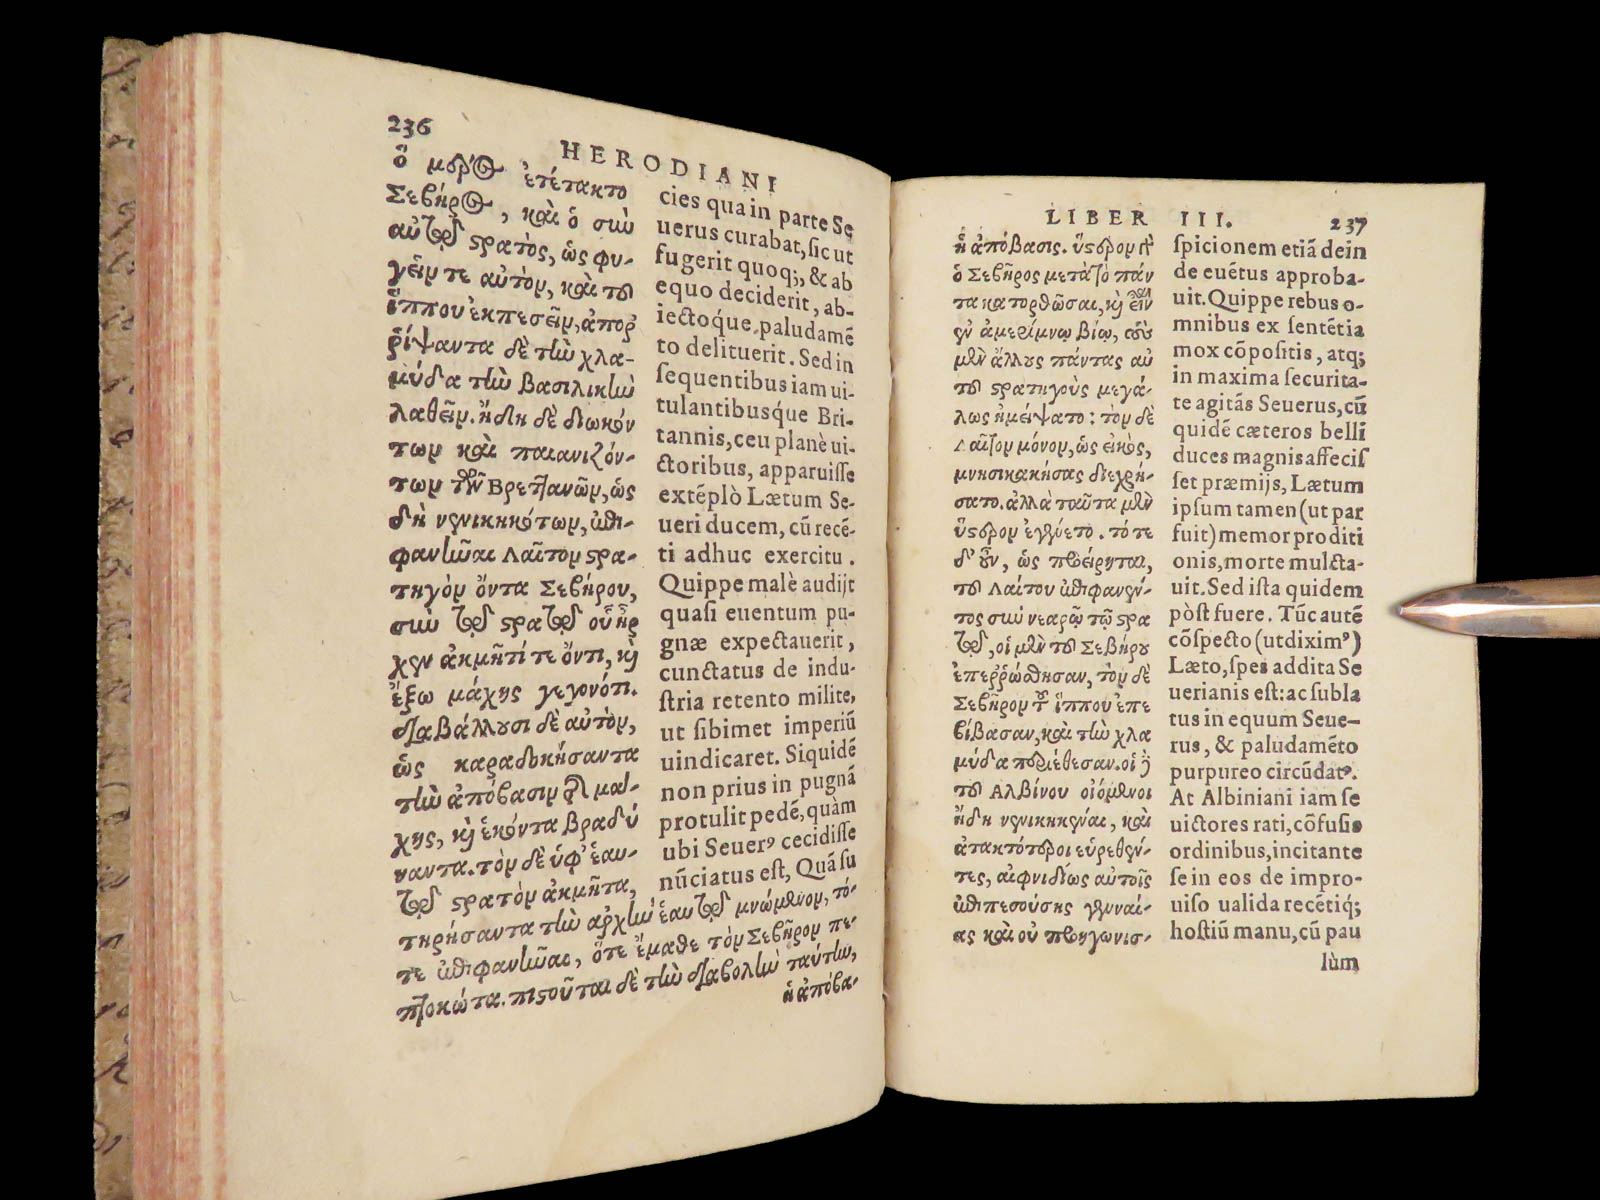 236
HERODIANI
ὃ μέρος ἐτέτακτο
Σεβήρος, καὶ ὁ σὺν
αὐτῷ στρατὸς, ὡς φυ-
γεῖν τε αὐτὸν, καὶ τοῦ
ἵππου ἐκπεσεῖν, ἀπορ
ῥίψαντα δὲ τὴν χλα-
μύδα τὴν βασιλικὴν
λαθεῖν. ἤδη δὲ διωκόν
των καὶ παιανιζόν-
των τῶν Βρεττανῶν, ὡς
δὴ νενικηκότων, ἐπι-
φανῆναι Λαῖτον στρα-
τηγὸν ὄντα Σεβήρου,
σὺν τῷ στρατῷ οὗ ἦρ
χεν ἀκμῆτί τε ὄντι, καὶ
ἔξω μάχης γεγονότι.
διαβάλλουσι δὲ αὐτὸν,
ὡς καραδοκήσαντα
τὴν ἀπόβασιν τῆς μά-
χης, καὶ ἑκόντα βραδύ
ναντα. τὸν δὲ ὑφ' ἑαυ-
τῷ στρατὸν ἀκμῆτα,
τηρήσαντα τὴν ἀρχὴν ἑαυτῷ μνώμενον, τό-
τε ἐπιφανῆναι, ὅτε ἔμαθε τὸν Σεβῆρον πε-
πτωκότα. πιστοῦται δὲ τὴν διαβολὴν ταύτην,
ἡ ἀπόβα-
cies qua in parte Se
uerus curabat, sic ut
fugerit quoq;, & ab
equo deciderit, ab-
iectóque paludamē
to delituerit. Sed in
sequentibus iam ui-
tulantibusque Bri-
tannis, ceu planè ui-
ctoribus, apparuisse
extēplò Lætum Se-
ueri ducem, cū recē-
ti adhuc exercitu.
Quippe malè audijt
quasi euentum pu-
gnæ expectauerit,
cunctatus de indu-
stria retento milite,
ut sibimet imperiū
uindicaret. Siquidē
non prius in pugnā
protulit pedē, quàm
ubi Seuerꝰ cecidisse
nūciatus est, Quā su
LIBER III. 237
ἡ ἀπόβασις. ὕστερον γὰρ
ὁ Σεβῆρος μετὰ τὸ πάν
τα κατορθῶσαι, καὶ εἶναι
ἐν ἀμερίμνῳ βίῳ, τοὺς
μὲν ἄλλους πάντας αὐ
τοῦ στρατηγοὺς μεγά-
λως ἠμείψατο: τὸν δὲ
Λαῖτον μόνον, ὡς εἰκὸς,
μνησικακήσας διεχρή-
σατο. ἀλλὰ ταῦτα μὲν
ὕστερον ἐγένετο. τότε
δ' οὖν, ὡς προείρηται,
τοῦ Λαίτου ἐπιφανέν-
τος σὺν νεαρῷ τῷ στρα
τῷ, οἱ μὲν τοῦ Σεβήρου
ἐπερρώσθησαν, τὸν δὲ
Σεβῆρον τοῦ ἵππου ἐπε
βίβασαν, καὶ τὴν χλα
μύδα περιέθεσαν. οἱ δὲ
τοῦ Ἀλβίνου οἰόμενοι
ἤδη νενικηκέναι, καὶ
ἀτακτότεροι εὑρεθέν-
τες, αἰφνιδίως αὐτοῖς
ἐπιπεσούσης γενναί-
ας καὶ οὐ προηγωνισ-
spicionem etiā dein
de euētus approba-
uit. Quippe rebus o-
mnibus ex sentētia
mox cōpositis, atq;
in maxima securita-
te agitās Seuerus, cū
quidē cæteros belli
duces magnis affecis
set præmijs, Lætum
ipsum tamen (ut par
fuit) memor proditi
onis, morte mulcta-
uit. Sed ista quidem
pòst fuere. Tūc autē
cōspecto (ut diximꝰ)
Læto, spes addita Se
uerianis est: ac subla
tus in equum Seue-
rus, & paludamēto
purpureo circūdatꝰ.
At Albiniani iam se
uictores rati, cōfusis
ordinibus, incitante
se in eos de impro-
uiso ualida recētiq́;
hostiū manu, cū pau
lùm